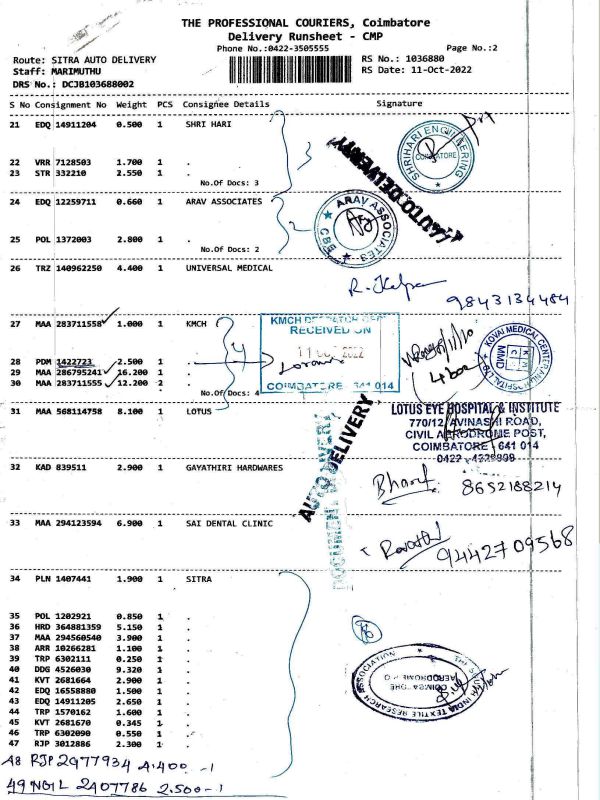 THE PROFESSIONAL COURIERS, Coimbatore
Delivery Runsheet - CMP
Phone No.:0422-3505555
Page No.:2
Route: SITRA AUTO DELIVERY
RS No.: 1036880
Staff: MARIMUTHU
RS Date: 11-Oct-2022
DRS No.: DCJB103688002
S No Consignment No Weight PCS Consignee Details Signature
21 EDQ 14911204 0.500 1 SHRI HARI
SHRIHARI ENGINEERING
COIMBATORE
3
AUTO DELIVERY
22 VRR 7128503 1.700 1 .
23 STR 332210 2.550 1 .
No.Of Docs: 3
24 EDQ 12259711 0.660 1 ARAV ASSOCIATES
ARAV ASSOCIATES
CBE
2
25 POL 1372003 2.800 1 .
No.Of Docs: 2
26 TRZ 140962250 4.400 1 UNIVERSAL MEDICAL
9843134484
27 MAA 283711558 1.000 1 KMCH
RECEIVED ON
11 2022
COIMBATORE 641 014
4
KOVAI MEDICAL CENTER
MMD
28 PDM 1422723 2.500 1 .
29 MAA 286795241 16.200 1 .
30 MAA 283711555 12.200 2 .
No.Of Docs: 4
4 box
31 MAA 568114758 8.100 1 LOTUS
LOTUS EYE HOSPITAL & INSTITUTE
770/12, AVINASHI ROAD,
CIVIL AERODROME POST,
COIMBATORE - 641 014
AUTO DELIVERY
32 KAD 839511 2.900 1 GAYATHIRI HARDWARES
8652188214
33 MAA 294123594 6.900 1 SAI DENTAL CLINIC
9442709568
34 PLN 1407441 1.900 1 SITRA
35 POL 1202921 0.850 1 .
36 HRD 364881359 5.150 1 .
37 MAA 294560540 3.900 1 .
38 ARR 10266281 1.100 1 .
39 TRP 6302111 0.250 1 .
40 DDG 4526030 9.320 1 .
41 KVT 2681664 2.900 1 .
42 EDQ 16558880 1.500 1 .
43 EDQ 14911205 2.650 1 .
44 TRP 1570162 1.600 1 .
45 KVT 2681670 0.345 1 .
46 TRP 6302090 0.550 1 .
47 RJP 3012886 2.300 1 .
16
THE SOUTH INDIA TEXTILE RESEARCH ASSOCIATION
COIMBATORE
AERODROME P.O
48 RJP 2977934 4.400 -1
49 NGIL 2407786 2.500 -1